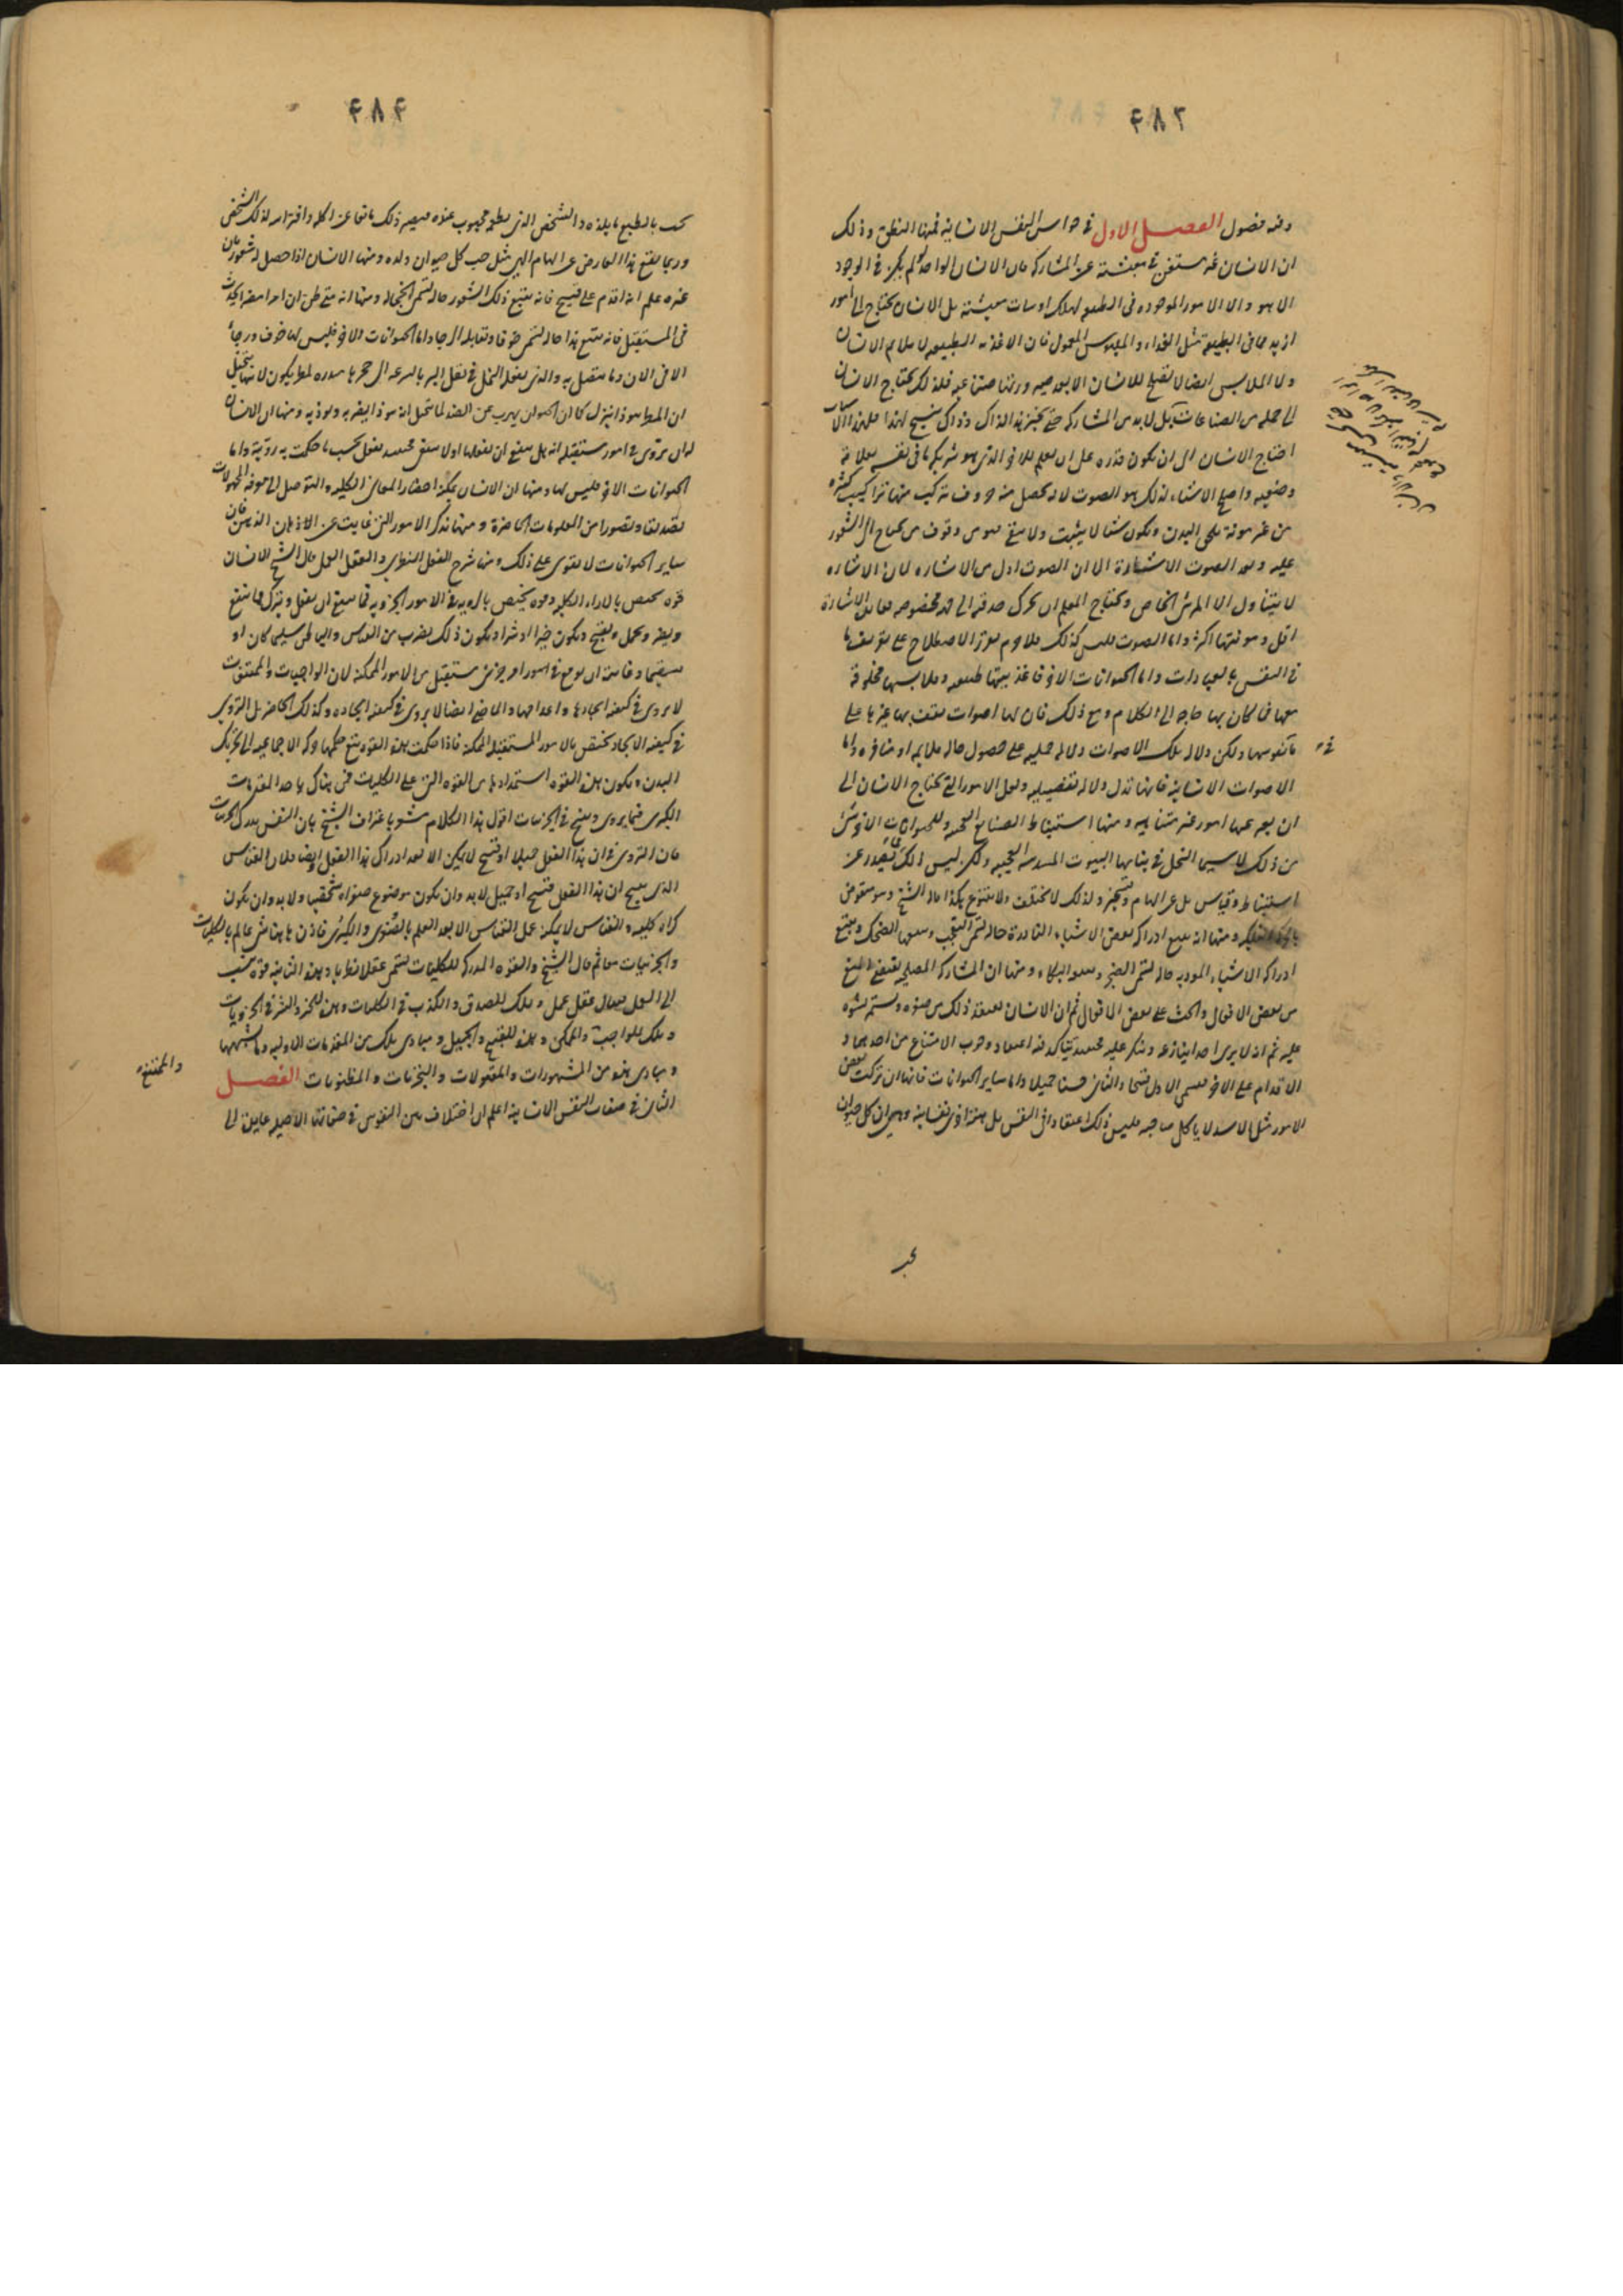 ۴۸۳
وفيه فصول الفصل الاول في خواص النفس الانسانية فمنها النطق وذلك
ان الانسان غير مستغن في معيشته عن المشاركة فان الانسان الواحد لو لم يكن في الوجود
الا هو والا الامور الموجودة في الطبيعة لهلك او ساءت معيشته بل الانسان محتاج الى امور
ازيد مما في الطبيعة مثل الغذاء والملبوس المعمول فان الاغذية الطبيعية لا تلائم الانسان
والملابس ايضا لا تصلح للانسان الا بعد صنعة فلذلك يحتاج الانسان
الى جملة من الصناعات بل لا بد من المشاركة حتى يخبز هذا لذاك وذاك ينسج لهذا فلهذه الاسباب
احتاج الانسان الى ان يكون قدرة على ان يعلم الاخر الذي هو شريكه ما في نفسه بعلامة
وضعية واصلح الاشياء لذلك هو الصوت لانه يحصل منه حروف تتركب منها تراكيب كثيرة
من غير مؤنة تلحق البدن ويكون شيئا لا يثبت ولا يبقى فيؤمن وقوف من لا يحتاج الى الشعور
عليه وبعد الصوت الاشارة الا ان الصوت ادل من الاشارة لان الاشارة
لا يتناول الا المرئي الخاص ويحتاج المعلم ان يحرك حدقته الى جهة مخصوصة فعائدة الاشارة
اقل ومؤنتها اكثر واما الصوت فليس كذلك فلا جرم تقرر الاصطلاح على تعريف ما
في النفس بالعبارات واما الحيوانات الاخر فاغذيتها طبيعية وملابسها مخلوقة
معها فما كان بها حاجة الى الكلام ومع ذلك فان لها اصوات تقف بها غيرها على
ما في نفوسها ولكن دلالة تلك الاصوات دلالة جملية على حصول حالة ملائمة او منافرة واما
الاصوات الانسانية فانها تدل دلالة تفصيلية ولعل الامور التي يحتاج الانسان الى
ان يعبر عنها امور غير متناهية ومنها استنباط الصنائع العجيبة وللحيوانات الاخر شيء
من ذلك لا سيما النحل في بنائها البيوت المسدسة العجيبة ولكن ليس ذلك مما يصدر عن
استنباط وقياس بل عن الهام وتسخير ولذلك لا يختلف ولا يتنوع هكذا قاله الشيخ وهو منقوض
بالحركة الفلكية ومنها انه يتبع ادراكه بعض الاشياء النادرة حالة تسمى التعجب ويتبعها الضحك ويتبع
ادراكه الاشياء الموذية حالة تسمى الضجر ويتبعها البكاء ومنها ان المشاركة المصلحية تقتضي المنع
من بعض الافعال والحث على بعض الافعال ثم ان الانسان يعتقد ذلك من صغره ويستمر نشوه
عليه ثم انه لا يرى احدا ينازعه وينكر عليه فحينئذ يتأكد فيه اعتقاد وجوب الامتناع من احدهما و
الاقدام على الاخر فيسمى الاول قبيحا والثاني حسنا جميلا واما سائر الحيوانات فانها ان تركت بعض
الامور مثل الاسد لا ياكل صاحبه فليس ذلك اعتقادا في النفس بل هيئة اخرى نفسانية وهي ان كل حيوان
يحب
۴۸۴
يحب بالطبع ما يلذه والشخص الذي يطعمه محبوب عنده فيصير ذلك مانعا عن اكله وافتراسه لذلك الشخص
وربما يقع هذا العارض عن الهام الهي مثل حب كل حيوان ولده ومنها الانسان اذا حصل له شعور بان
غيره علم انه اقدم على قبيح فانه يتبع ذلك الشعور حالة تسمى الخجالة ومنها انه متى ظن ان امرا مضرا يحدث
في المستقبل فانه يتبع هذا حالة تسمى خوفا وتقابله الرجاء واما الحيوانات الاخر فليس لها خوف ورجاء
الا في الان وما يتصل به والذي يفعله النمل في نقل البر بالسرعة الى جحرها منذرة بمطر يكون لانها تتخيل
ان المطر هوذا ينزل كما ان الحيوان يهرب عن الضد لما تخيل انه هوذا يضربه ويوذيه ومنها ان الانسان
له ان يتروى في امور مستقبلة انه هل ينبغي ان يفعلها او لا ينبغي فحينئذ يفعل بحسب ما حكمت به رويته واما
الحيوانات الاخر فليس لها ومنها ان الانسان يمكنه احضار المعاني الكلية والتوصل الى معرفة المجهولات
تصديقا وتصورا من المعلومات الحاضرة ومنها تذكر الامور التي غابت عن الاذهان الذهن فان
سائر الحيوانات لا تقوى على ذلك ومنها شرح العقل النظري والعقل العملي قال الشيخ للانسان
قوة تختص بالاراء الكلية وقوة تختص بالروية في الامور الجزوية فيما ينبغي ان يفعل ويترك مما ينفع
ويضر ويجمل ويقبح ويكون خيرا او شرا ويكون ذلك بضرب من القياس والتامل سليما كان او
سقيما وغايته ان يوقع في امور امر جزئي مستقبل من الامور الممكنة لان الواجبات والممتنعات
لا يروى في كيفية ايجادها واعدامها والماضي ايضا لا يروى في كيفية ايجاده وكذلك الحاضر بل التروي
في كيفية الايجاد يختص بالامور المستقبلة الممكنة فاذا حكمت هذه القوة يتبع حكمها حركة الاجماعية الى تحريك
البدن ويكون لهذه القوة استمدادها من القوة التي على الكليات فمن هناك ياخذ المقدمات
الكبرى فيما يروى وينتج في الجزئيات اقول هذا الكلام مشعر باعتراف الشيخ بان النفس تدرك الجزئيات
فان التروي في ان هذا الفعل جميل او قبيح لا يمكن الا بعد ادراك هذا الفعل وايضا فلان القياس
الذي ينتج ان هذا الفعل قبيح او جميل لا بد وان يكون موضوع صغراه شخصيا ولا بد وان يكون
كبراه كلية والقياس لا يمكنه عمل القياس الا بعد العلم بالصغرى والكبرى فاذن ها هنا شيء عالم بالكليات
والجزئيات معا ثم قال الشيخ والقوة المدركة للكليات تسمى عقلا نظريا وهذه الثانية قوة تنسب
الى العمل فيقال عقل عملي وتلك للصدق والكذب في الكليات وهذه للخير والشر في الجزويات
وتلك للواجب والممكن والممتنع وهذه للقبيح والجميل ومبادي تلك من المقدمات الاولية وما يشبهها
ومبادي هذه من المشهورات والمقبولات والتجربيات والمظنونات الفصل
الثاني في صفات النفس الانسانية اعلم ان اختلاف بين النفوس في صفاتها الاصلية عائد الى